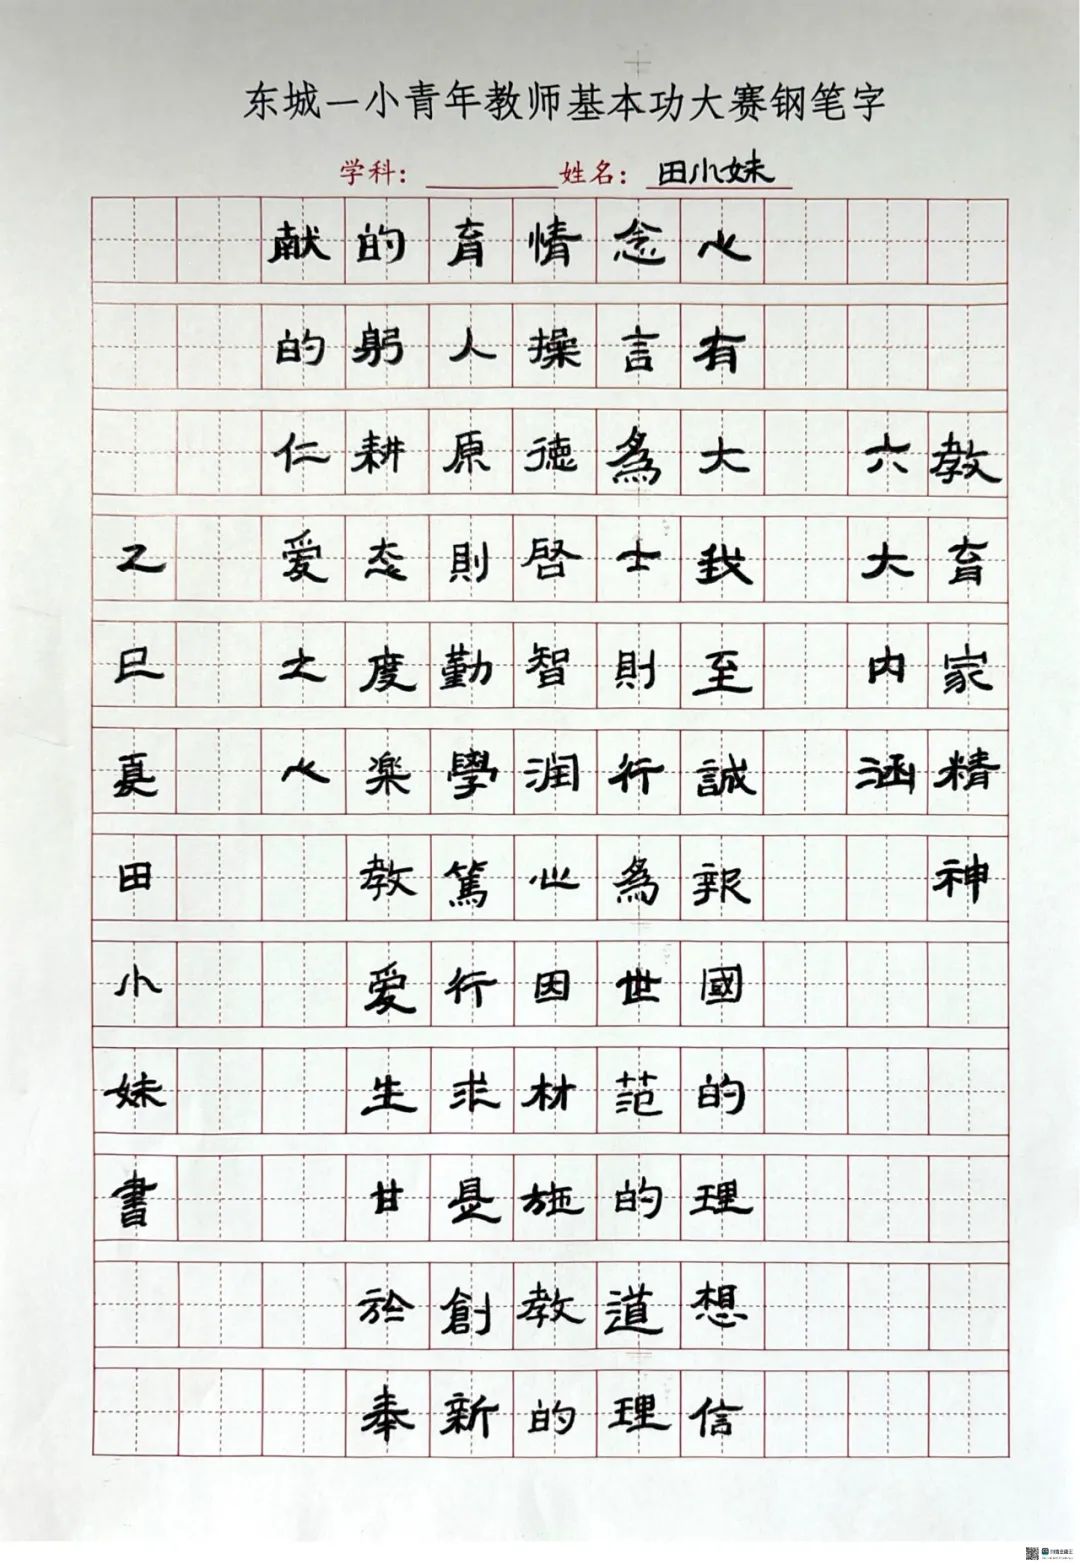 东城一小青年教师基本功大赛钢笔字
学科： 姓名：田小妹
教育家精神
六大内涵
心有大我至誠報國的理想信
念言為士則行為世范的道理
情操徳啓智润心因材施教的
育人原則勤學篤行求是創新
的躬耕态度楽教爱生甘於奉
献的仁爱之心
乙巳夏田小妹書